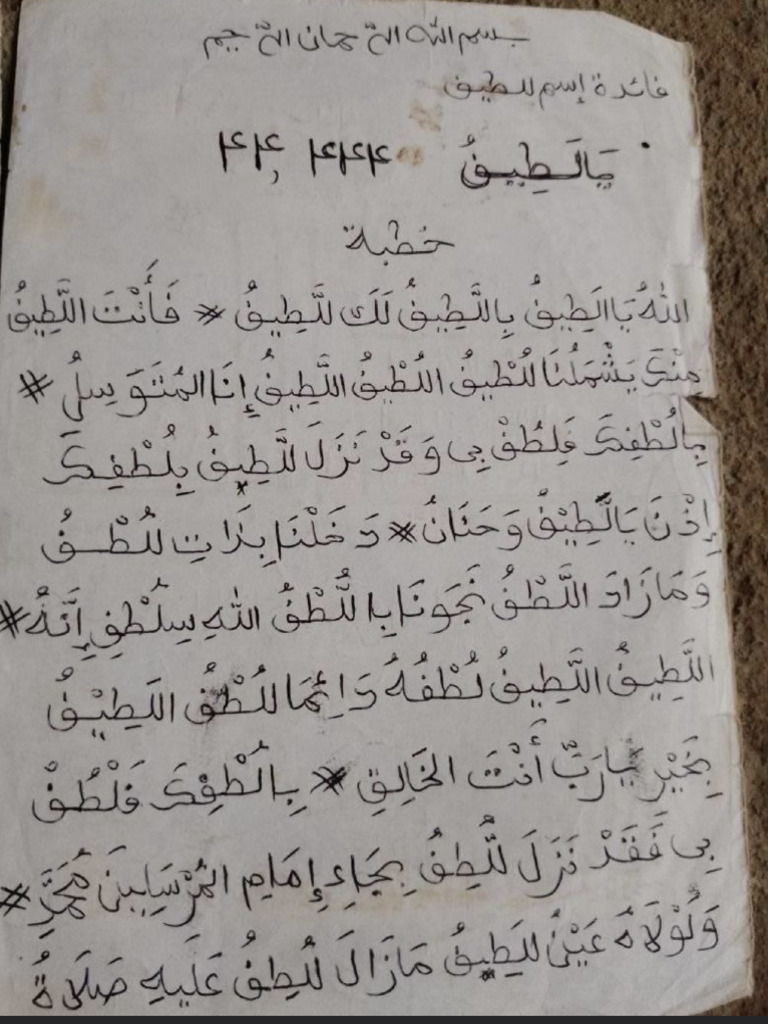 بسم الله الرّحمان الرّحيم
فائدة إسم للطيف
يَالَطِيفُ ٤٤٤ ,٤٤
خطبة
اللهُ يَااَلَطِيفُ بِاللَّطِيفُ لَكَ للَّطِيفُ * فَأَنْتَ اللَّطِيفُ
مِنْكَ يَشْمَلُنَا للُطْيفُ اللُطْيفُ اللَّطِيفُ إِنَا المُتَوَسِلُ *
بِالُطْفِكَ فَلِطُفْ بِى وَقَدْ نَزَلَ للَّطِيفُ بِلُطْفِكَ
إِذْنَ يَالَّطِيْفُ وَحَنَانُ * دَخَلْنَا بِذَاتِ للُطْفُ
وَمَازَادَ اللَّطْفُ نَجَوْنَا بِاللُّطْفُ اللهِ سِلُطْفِ إِنَّهُ *
اللَّطِيفُ اللَّطِيفُ لُطْفُهُ دَائِمَا للُطْفُ اللَطِيْفُ
بِخَيْرِ يَارَبِّ أَنْتَ الخَالِقِ * بِالُطْفِكَ فَلْطُفْ
بِى فَقَدْ نَزَلَ للُّطِفُ بِجَاءِ إِمَامِ المُرْسَلِينَ مُحَمَّدِ *
وَلَوْلَاهُ عَيْنُ للَطِيفُ مَازَالَ للُطِفُ عَلَيهِ صَلَاةُ